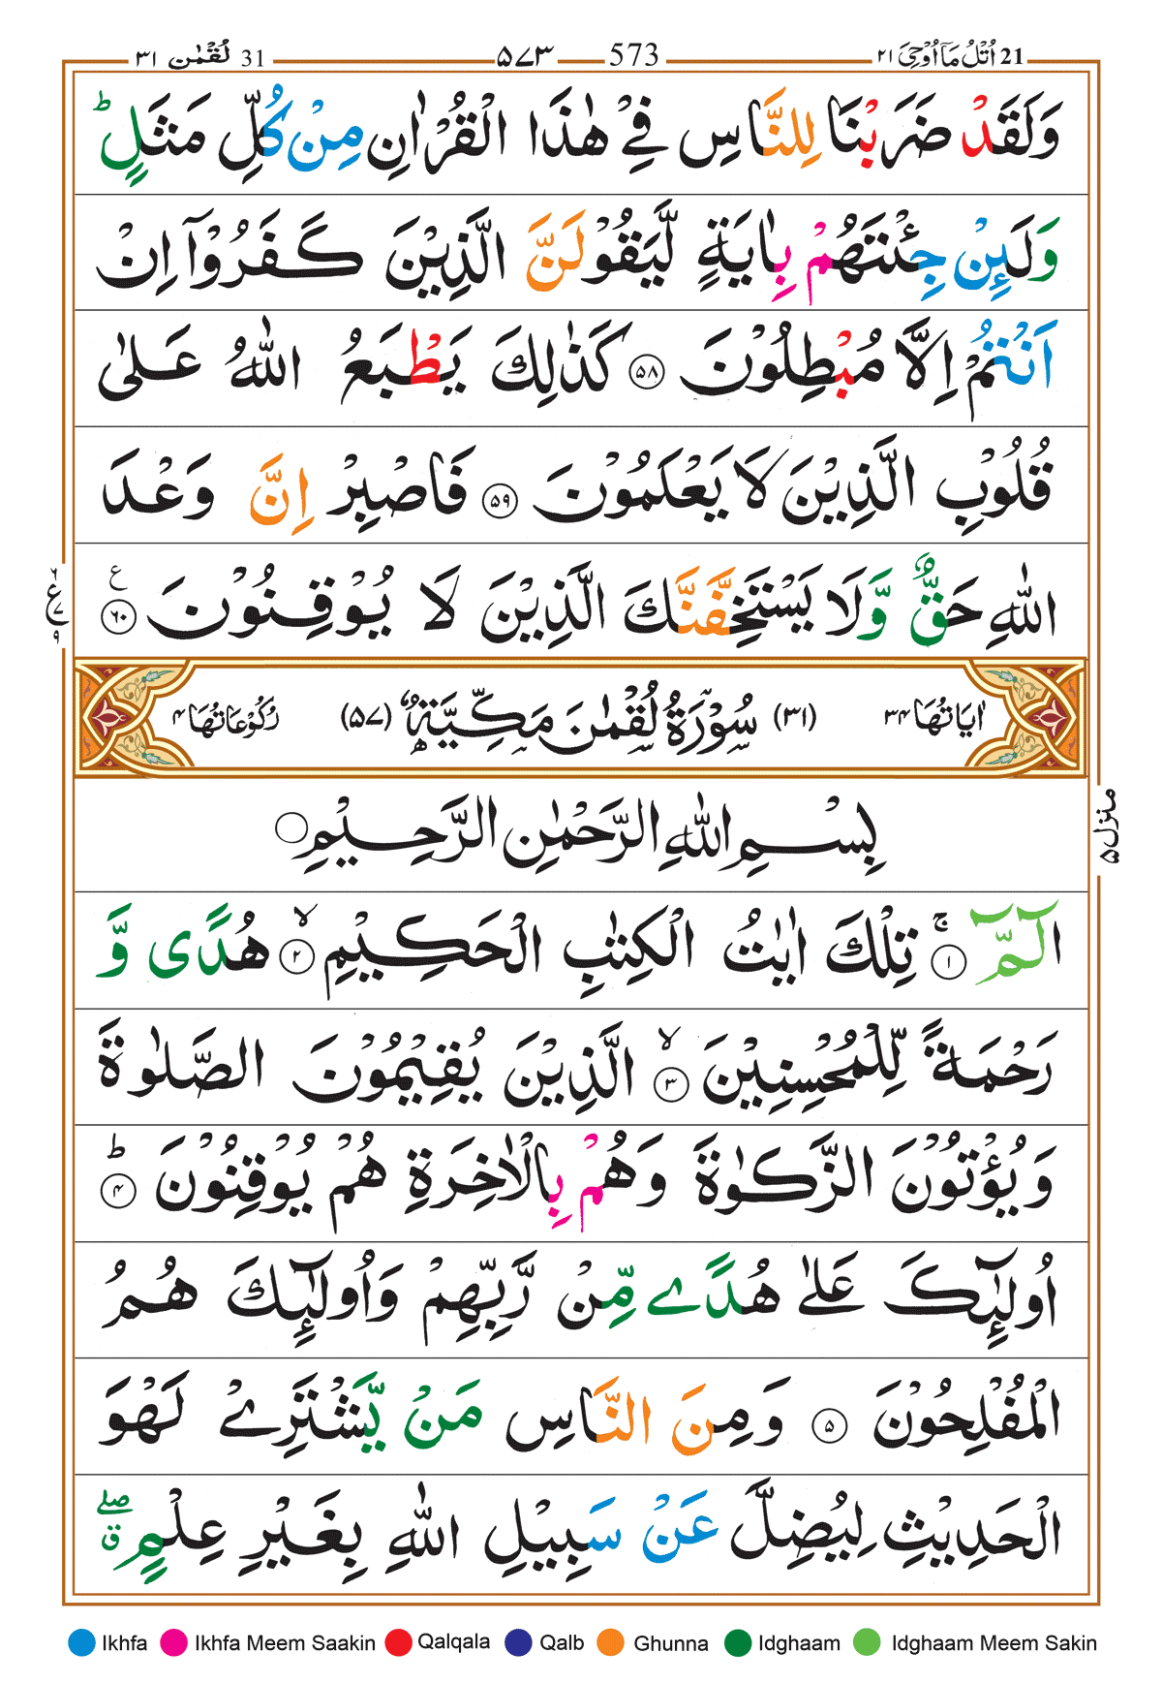 21 اُتْلُ مَآ اُوْحِیَ ۲۱
573 ۵۷۳
31 لُقْمٰن ۳۱
وَلَقَدْ ضَرَبْنَا لِلنَّاسِ فِیْ هٰذَا الْقُرْاٰنِ مِنْ كُلِّ مَثَلٍ ؕ
وَلَىِٕنْ جِئْتَهُمْ بِاٰیَةٍ لَّیَقُوْلَنَّ الَّذِیْنَ كَفَرُوْۤا اِنْ
اَنْتُمْ اِلَّا مُبْطِلُوْنَ ۵۸ كَذٰلِكَ یَطْبَعُ اللّٰهُ عَلٰی
قُلُوْبِ الَّذِیْنَ لَا یَعْلَمُوْنَ ۵۹ فَاصْبِرْ اِنَّ وَعْدَ
اللّٰهِ حَقٌّ وَّلَا یَسْتَخِفَّنَّكَ الَّذِیْنَ لَا یُوْقِنُوْنَ ۶۰ ع
اٰیَاتُهَا ۳۴ (۳۱) سُوْرَةُ لُقْمٰنَ مَكِّیَّةٌ (۵۷) رُكُوْعَاتُهَا ۴
منزل ۵
بِسْمِ اللّٰهِ الرَّحْمٰنِ الرَّحِیْمِ
الٓمّٓ ۱ ۚ تِلْكَ اٰیٰتُ الْكِتٰبِ الْحَكِیْمِ ۲ ۙ هُدًی وَّ
رَحْمَةً لِّلْمُحْسِنِیْنَ ۳ ۙ الَّذِیْنَ یُقِیْمُوْنَ الصَّلٰوةَ
وَیُؤْتُوْنَ الزَّكٰوةَ وَهُمْ بِالْاٰخِرَةِ هُمْ یُوْقِنُوْنَ ۴ ؕ
اُولٰٓىِٕكَ عَلٰی هُدًی مِّنْ رَّبِّهِمْ وَاُولٰٓىِٕكَ هُمُ
الْمُفْلِحُوْنَ ۵ وَمِنَ النَّاسِ مَنْ یَّشْتَرِیْ لَهْوَ
الْحَدِیْثِ لِیُضِلَّ عَنْ سَبِیْلِ اللّٰهِ بِغَیْرِ عِلْمٍ ۖق
Ikhfa Ikhfa Meem Saakin Qalqala Qalb Ghunna Idghaam Idghaam Meem Sakin